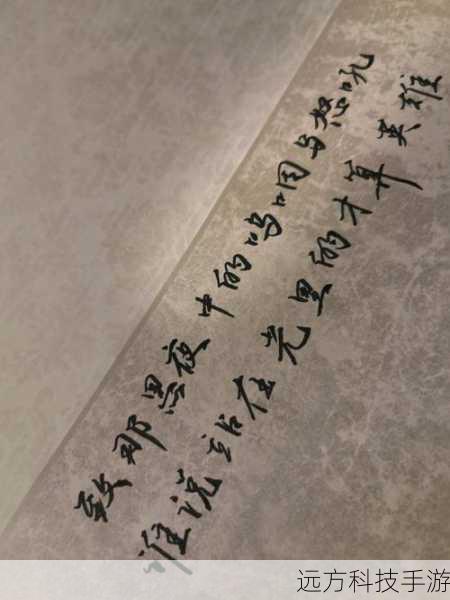 致那黑夜中的呜咽与怒吼
谁说站在光里的才算英雄
远方科技手游